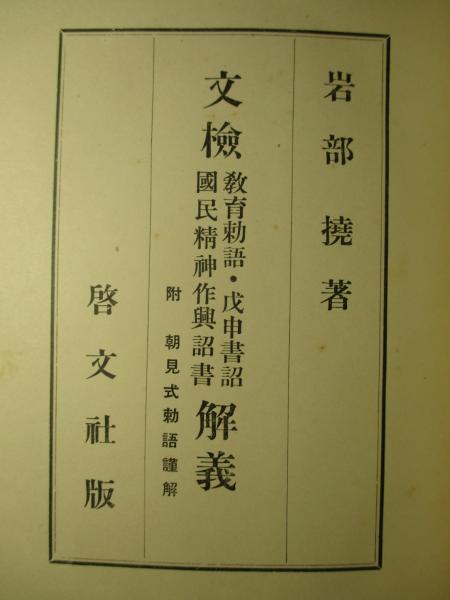 岩部撓著
文檢
敎育勅語・戊申書詔
國民精神作興詔書
解義
附 朝見式勅語謹解
啓文社版